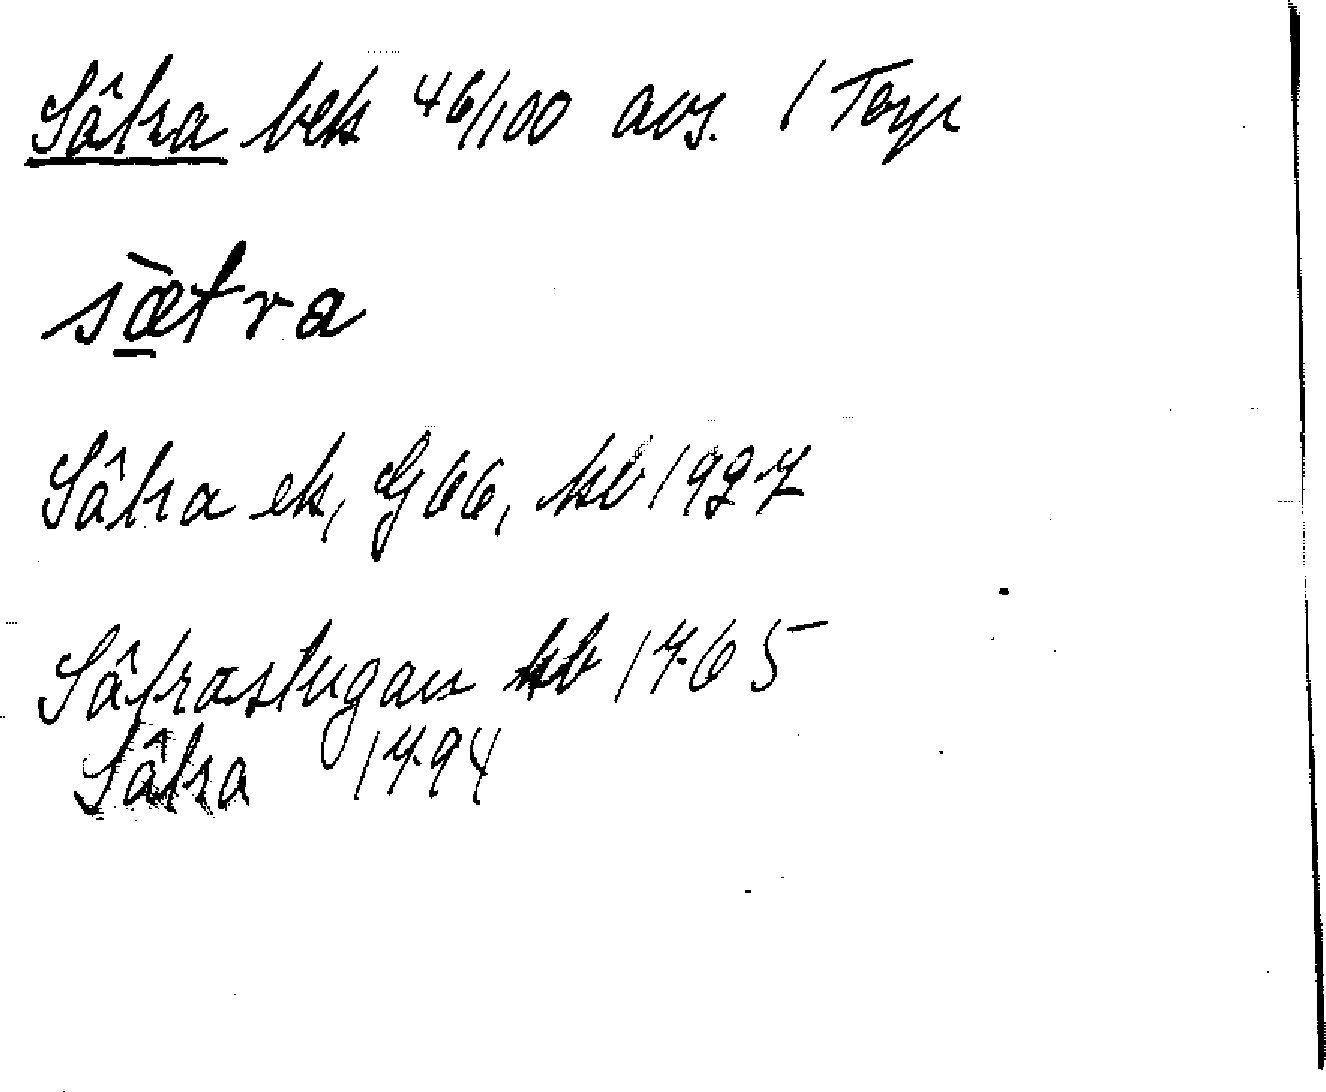 Sätra bek 46/100 avs. 1 Torp
sætra
Sätra ek, G 66, kb 1927
Sätrastugan kb 1765
Sätra 1794